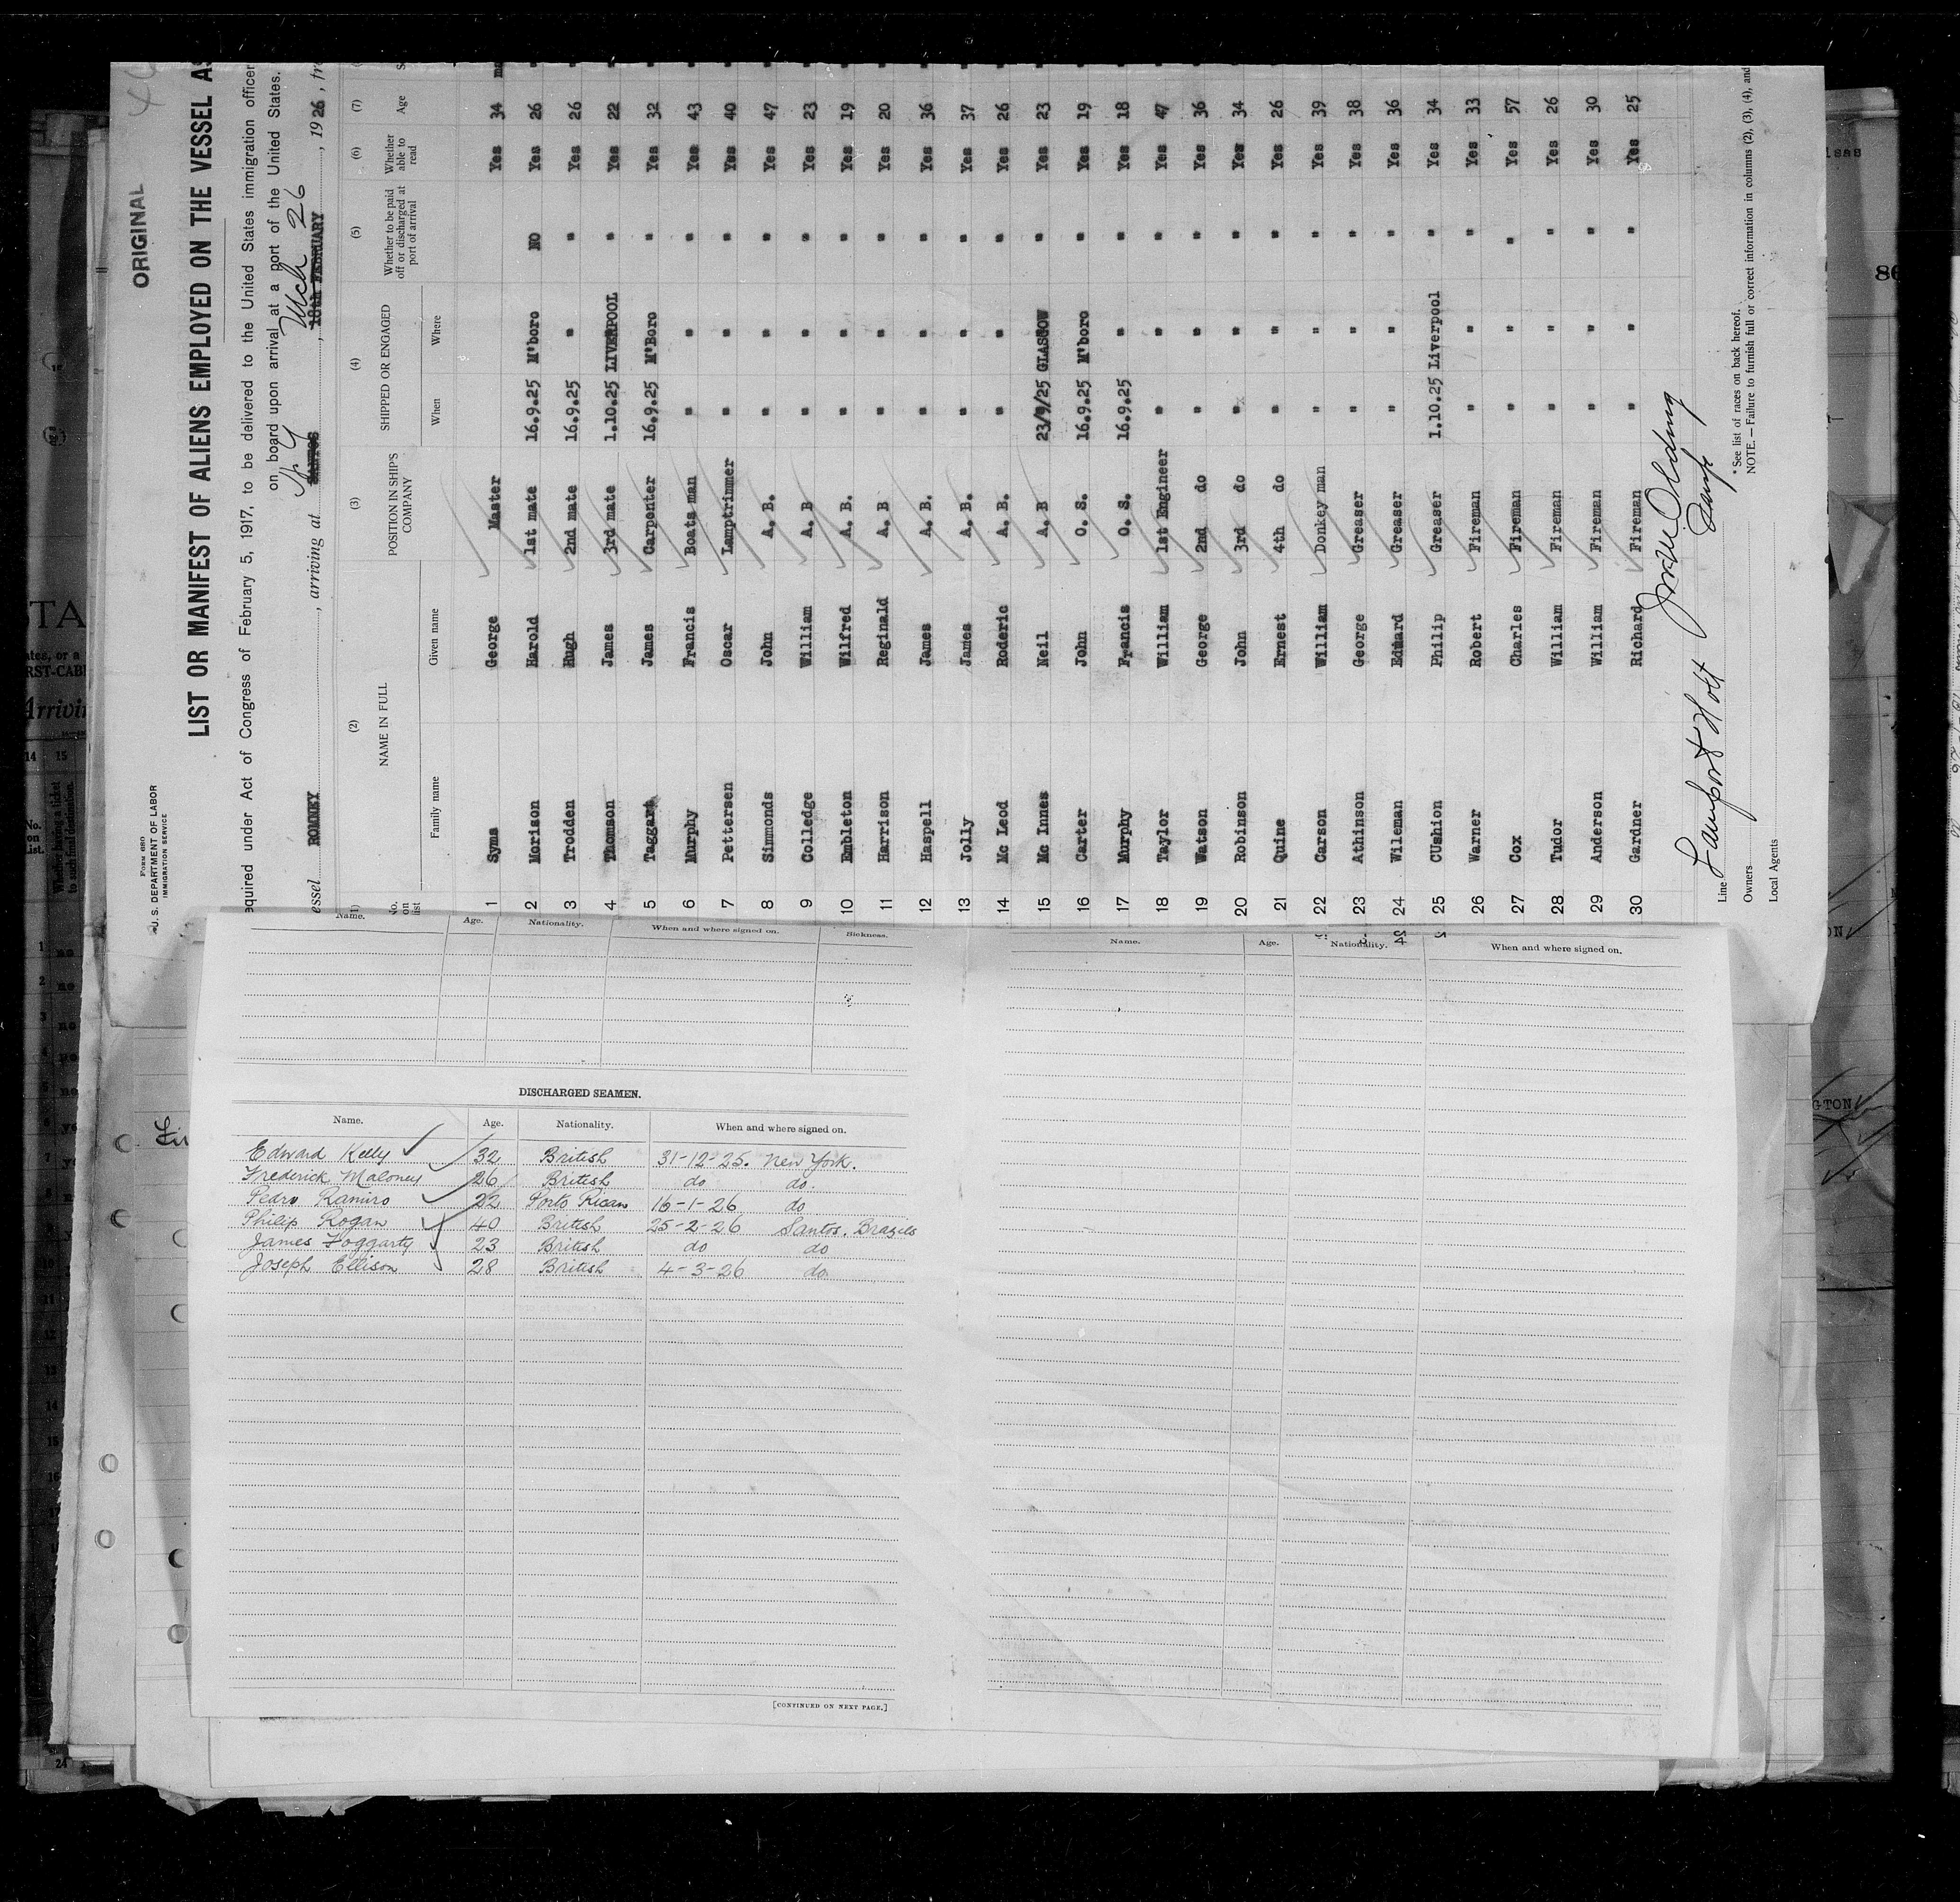 ORIGINAL
Form 680
U. S. DEPARTMENT OF LABOR
IMMIGRATION SERVICE
LIST OR MANIFEST OF ALIENS EMPLOYED ON THE VESSEL AS
equired under Act of Congress of February 5, 1917, to be delivered to the United States immigration officer
on board upon arrival at a port of the United States.
essel ROMNEY, arriving at SANTOS N Y, 18th FEBRUARY Mch 26, 1926, fro
(1) (2) (3) (4) (5) (6) (7)
No. on list NAME IN FULL POSITION IN SHIP'S COMPANY SHIPPED OR ENGAGED Whether to be paid off or discharged at port of arrival Whether able to read Age
Family name Given name When Where
1 Syms George Master Yes 34
2 Morison Harold 1st mate 16.9.25 M'boro NO Yes 26 "
3 Trodden Hugh 2nd mate 16.9.25 " " Yes 26 "
4 Thomson James 3rd mate 1.10.25 LIVERPOOL " Yes 22 "
5 Taggart James Carpenter 16.9.25 M'Boro " Yes 32 "
6 Murphy Francis Boats man " " " Yes 43 "
7 Pettersen Oscar Lamptrimmer " " " Yes 40 "
8 Simmonds John A. B. " " " Yes 47 "
9 Colledge William A. B " " " Yes 23 "
10 Embleton Wilfred A. B. " " " Yes 19 "
11 Harrison Reginald A. B " " " Yes 20 "
12 Haspell James A. B. " " " Yes 36 "
13 Jolly James A. B. " " " Yes 37 "
14 Mc Leod Roderic A. B. " " " Yes 26 "
15 Mc Innes Neil A. B 23/9/25 GLASGOW " Yes 23 "
16 Carter John O. S. 16.9.25 M'boro " Yes 19 "
17 Murphy Francis O. S. 16.9.25 " " Yes 18 "
18 Taylor William 1st Engineer " " " Yes 47 "
19 Watson George 2nd do " " " Yes 36 "
20 Robinson John 3rd do " " " Yes 34 "
21 Quine Ernest 4th do " " " Yes 26 "
22 Carson William Donkey man " " " Yes 39 "
23 Athinson George Greaser " " " Yes 38 "
24 Wileman Edmard Greaser " " " Yes 36 "
25 CUshion Philip Greaser 1.10.25 Liverpool " Yes 34 "
26 Warner Robert Fireman " " " Yes 33 "
27 Cox Charles Fireman " " " Yes 57 "
28 Tudor William Fireman " " " Yes 26 "
29 Anderson William Fireman " " " Yes 30 "
30 Gardner Richard Fireman " " " Yes 25 "
Line Lamport & Holt
Owners
Local Agents
* See list of races on back hereof.
NOTE. — Failure to furnish full or correct information in columns (2), (3), (4), and
Name. Age. Nationality. When and where signed on. Sickness.
DISCHARGED SEAMEN.
Name. Age. Nationality. When and where signed on.
Edward Kelly 32 British 31-12-25. New York.
Frederick Maloney 26 British do do.
Pedro Ramiro 22 Porto Rican 16-1-26 do
Philip Rogan 40 British 25-2-26 Santos. Brazils
James Foggarty 23 British do do
Joseph Ellison 28 British 4-3-26 do
[CONTINUED ON NEXT PAGE.]
Name. Age. Nationality. When and where signed on.